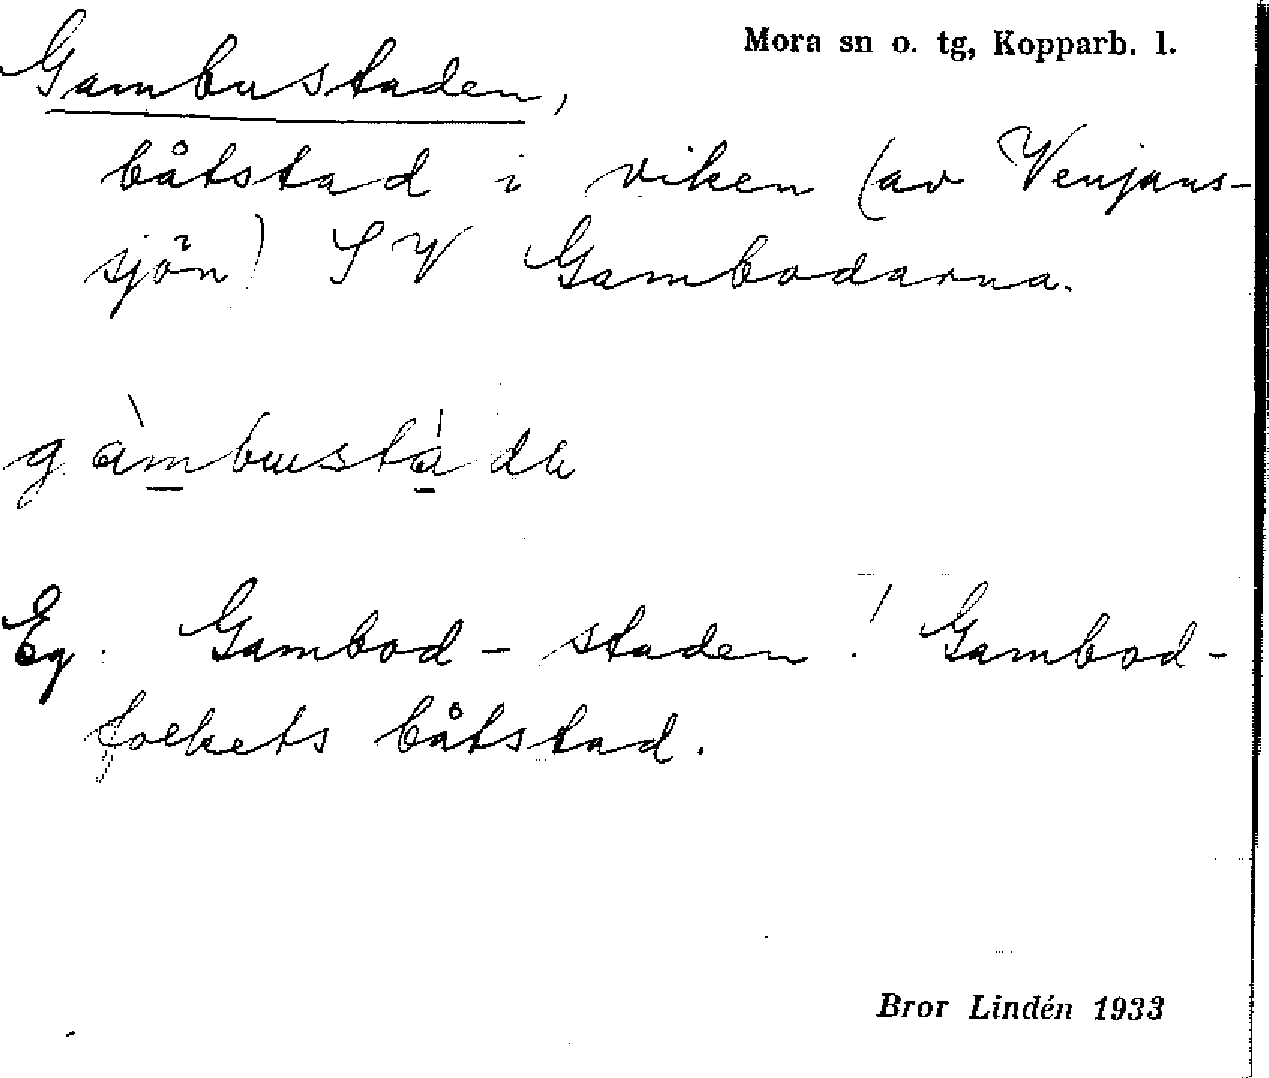 Mora sn o. tg, Kopparb. l.
Gambustaden,
båtstad i viken (av Venjans-
sjön) SV Gambodarna.
Eg. Gambod-staden! Gambod-
folkets båtstad.
Bror Lindén 1933